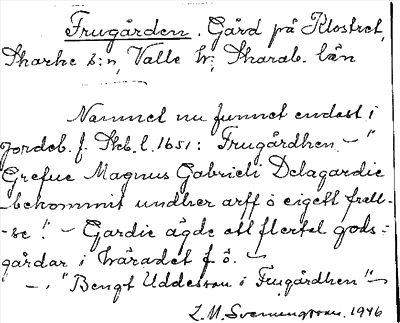 Frugården. Gård på Klostret,
Skarke s:n, Valle h:, Skarab. län
Namnet nu funnet endast i
Jordeb. f. Skb. l. 1651: Frugårdhen. — "
Grefue Magnus Gabrieli Delagardie
bekommit undher arff ö eigett frell-
se." — Gardie ägde ett flertal gods:
gårdar i häradet f. ö. —
—. "Bengt Uddesson i Frugårdhen" —
L. M. Svenungsson. 1946